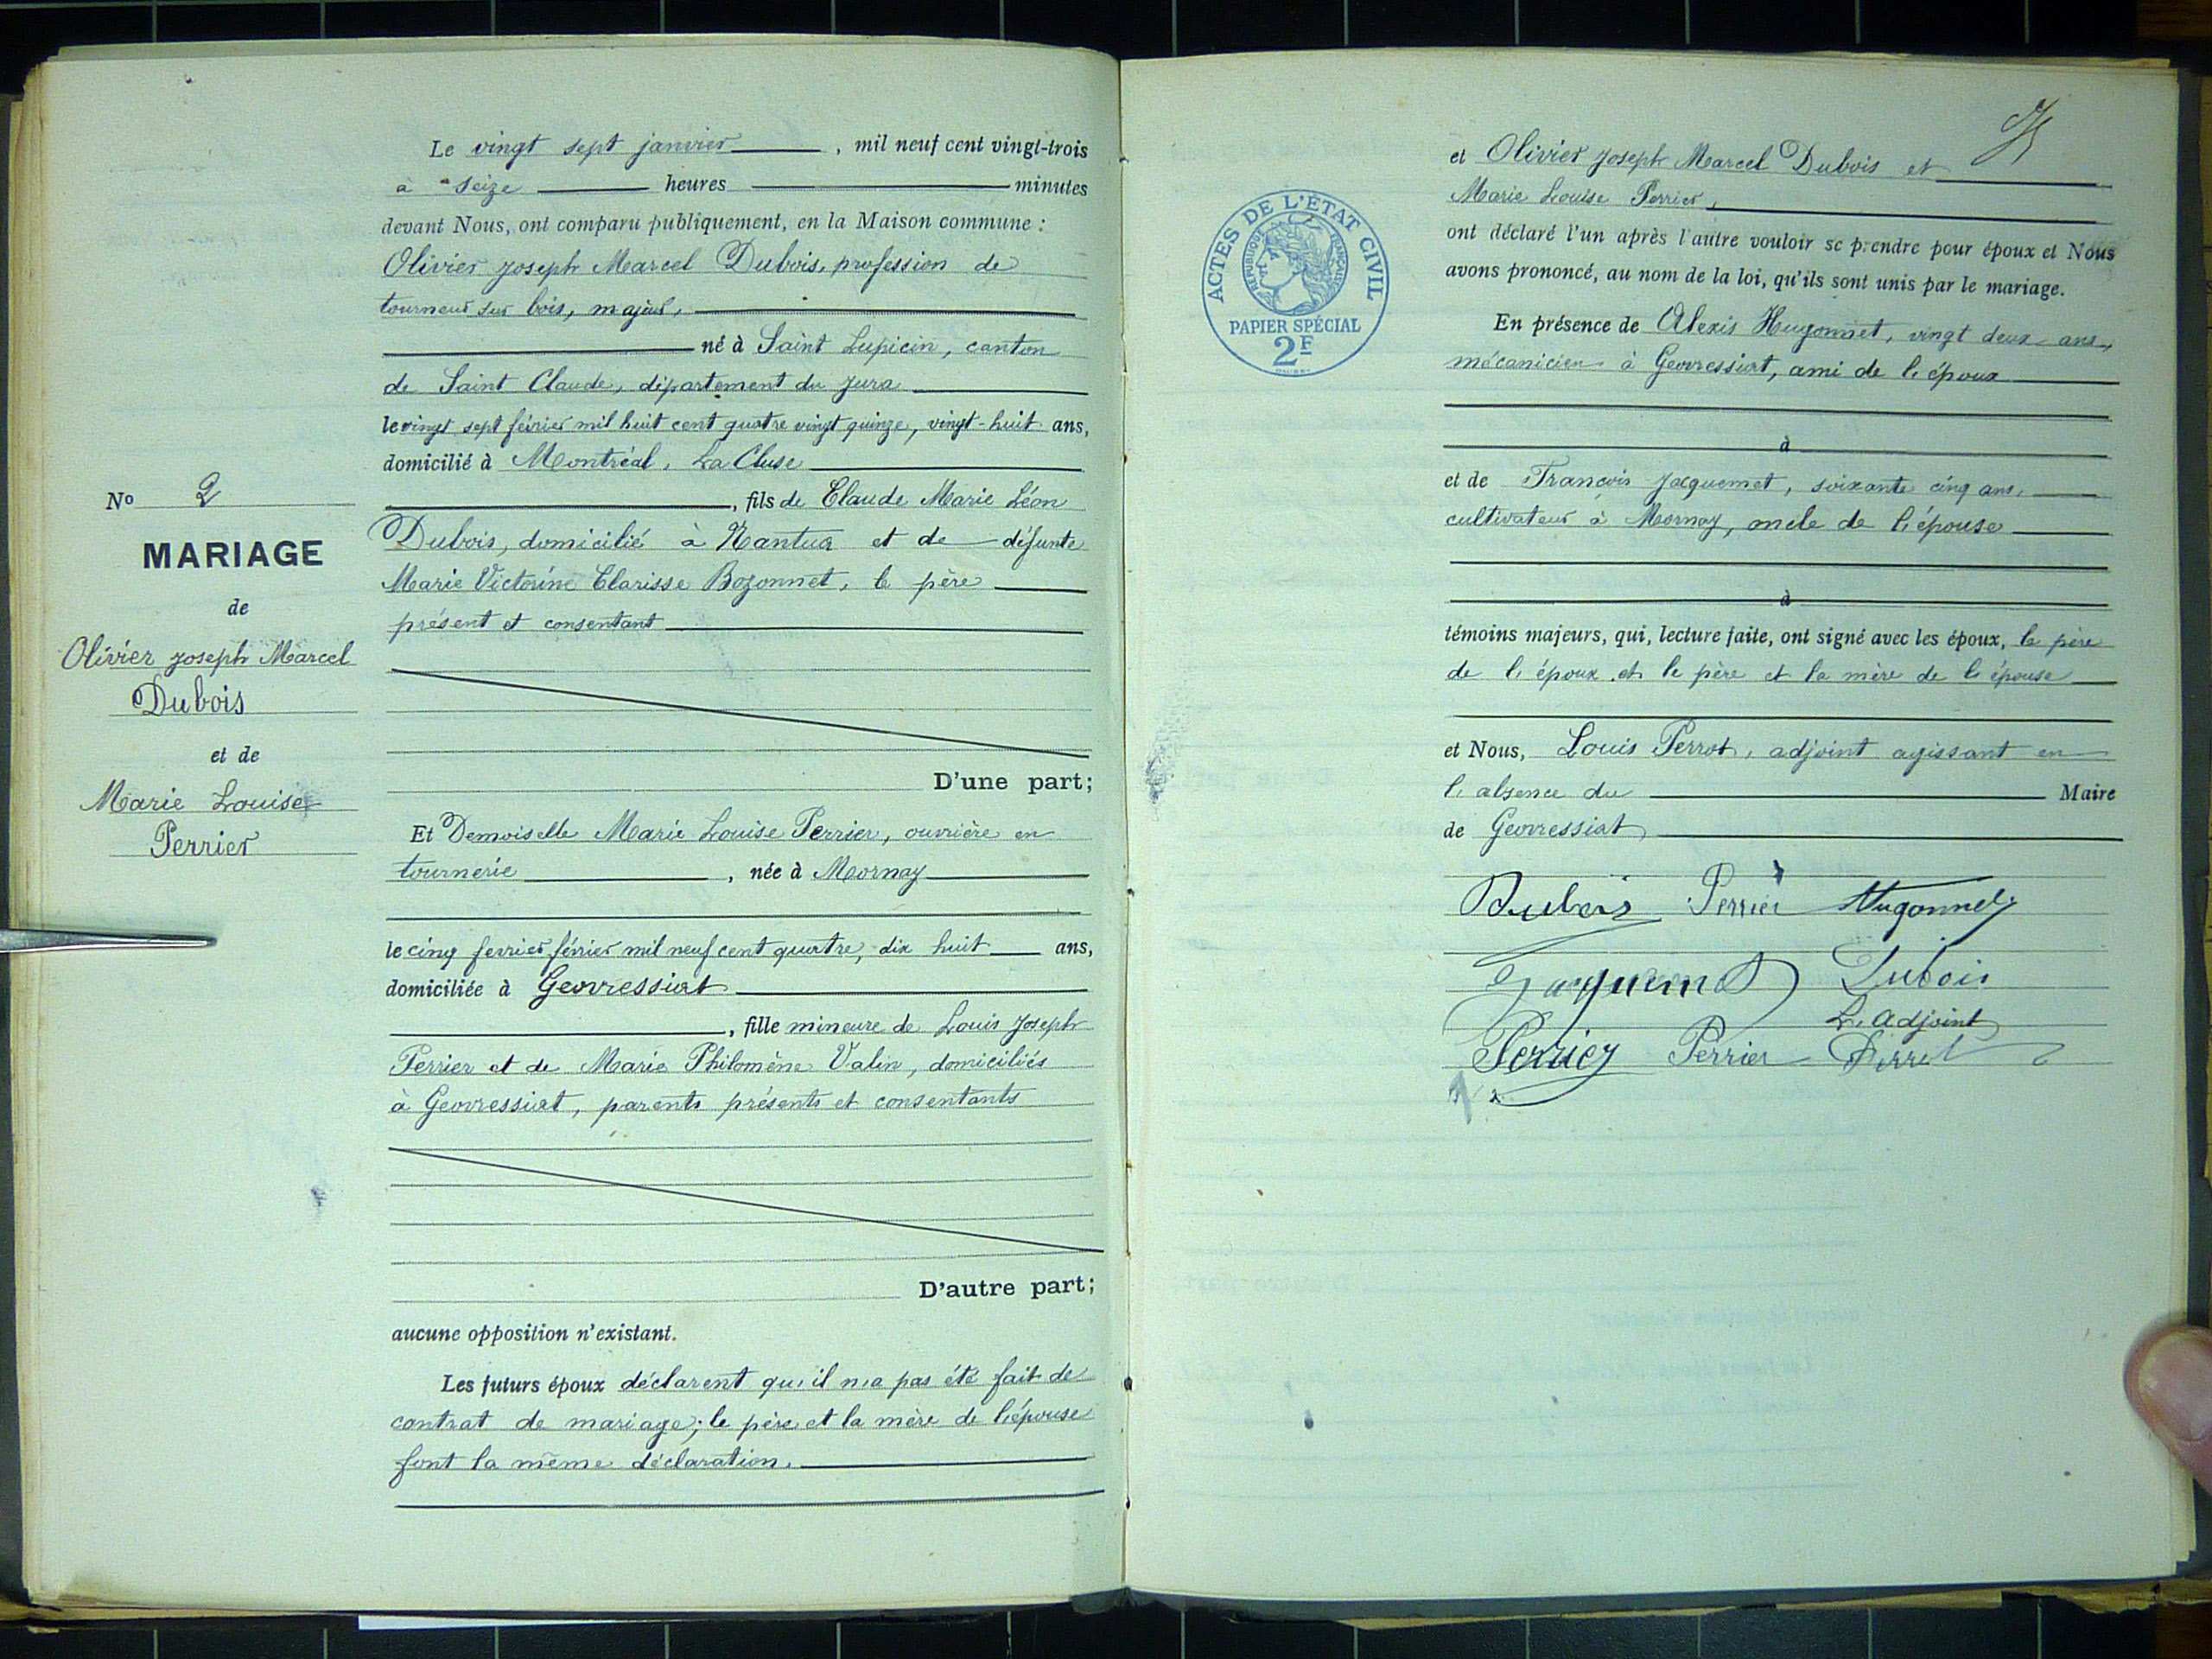 Le vingt sept janvier, mil neuf cent vingt-trois
à seize heures minutes
devant Nous, ont comparu publiquement, en la Maison commune :
Olivier Joseph Marcel Dubois, profession de
tourneur sur bois, majeur,
né à Saint Lupicin, canton
de Saint Claude, département du Jura
le vingt sept février mil huit cent quatre vingt quinze, vingt-huit ans,
domicilié à Montréal, La Cluse
, fils de Claude Marie Léon
Dubois, domicilié à Nantua et de défunte
Marie Victorine Clarisse Bozonnet, le père
présent et consentant
D'une part;
Et Demoiselle Marie Louise Perrier, ouvrière en
tournerie, née à Mornay
le cinq fevrier février mil neuf cent quatre, dix huit ans,
domiciliée à Geovressiat
, fille mineure de Louis Joseph
Perrier et de Marie Philomène Valin, domiciliés
à Geovressiat, parents présents et consentants
D'autre part;
aucune opposition n'existant.
Les futurs époux déclarent qu'il n'a pas été fait de
contrat de mariage; le père et la mère de l'épouse
font la même déclaration.
No 2
MARIAGE
de
Olivier Joseph Marcel
Dubois
et de
Marie Louise
Perrier
ACTES DE L'ÉTAT CIVIL
RÉPUBLIQUE FRANÇAISE
PAPIER SPÉCIAL
2F
et Olivier Joseph Marcel Dubois et
Marie Louise Perrier,
ont déclaré l'un après l'autre vouloir se prendre pour époux et Nous
avons prononcé, au nom de la loi, qu'ils sont unis par le mariage.
En présence de Alexis Hugonnet, vingt deux ans,
mécanicien à Geovressiat, ami de l'époux
à
et de François Jacquemet, soixante cinq ans,
cultivateur à Mornay, oncle de l'épouse
à
témoins majeurs, qui, lecture faite, ont signé avec les époux, le père
de l'époux et le père et la mère de l'épouse
et Nous, Louis Perrot, adjoint agissant en
l'absence du Maire
de Geovressiat
Dubois Perrier Hugonnet
Jacquemet Dubois
L'adjoint
Perrier Perrier Perrot